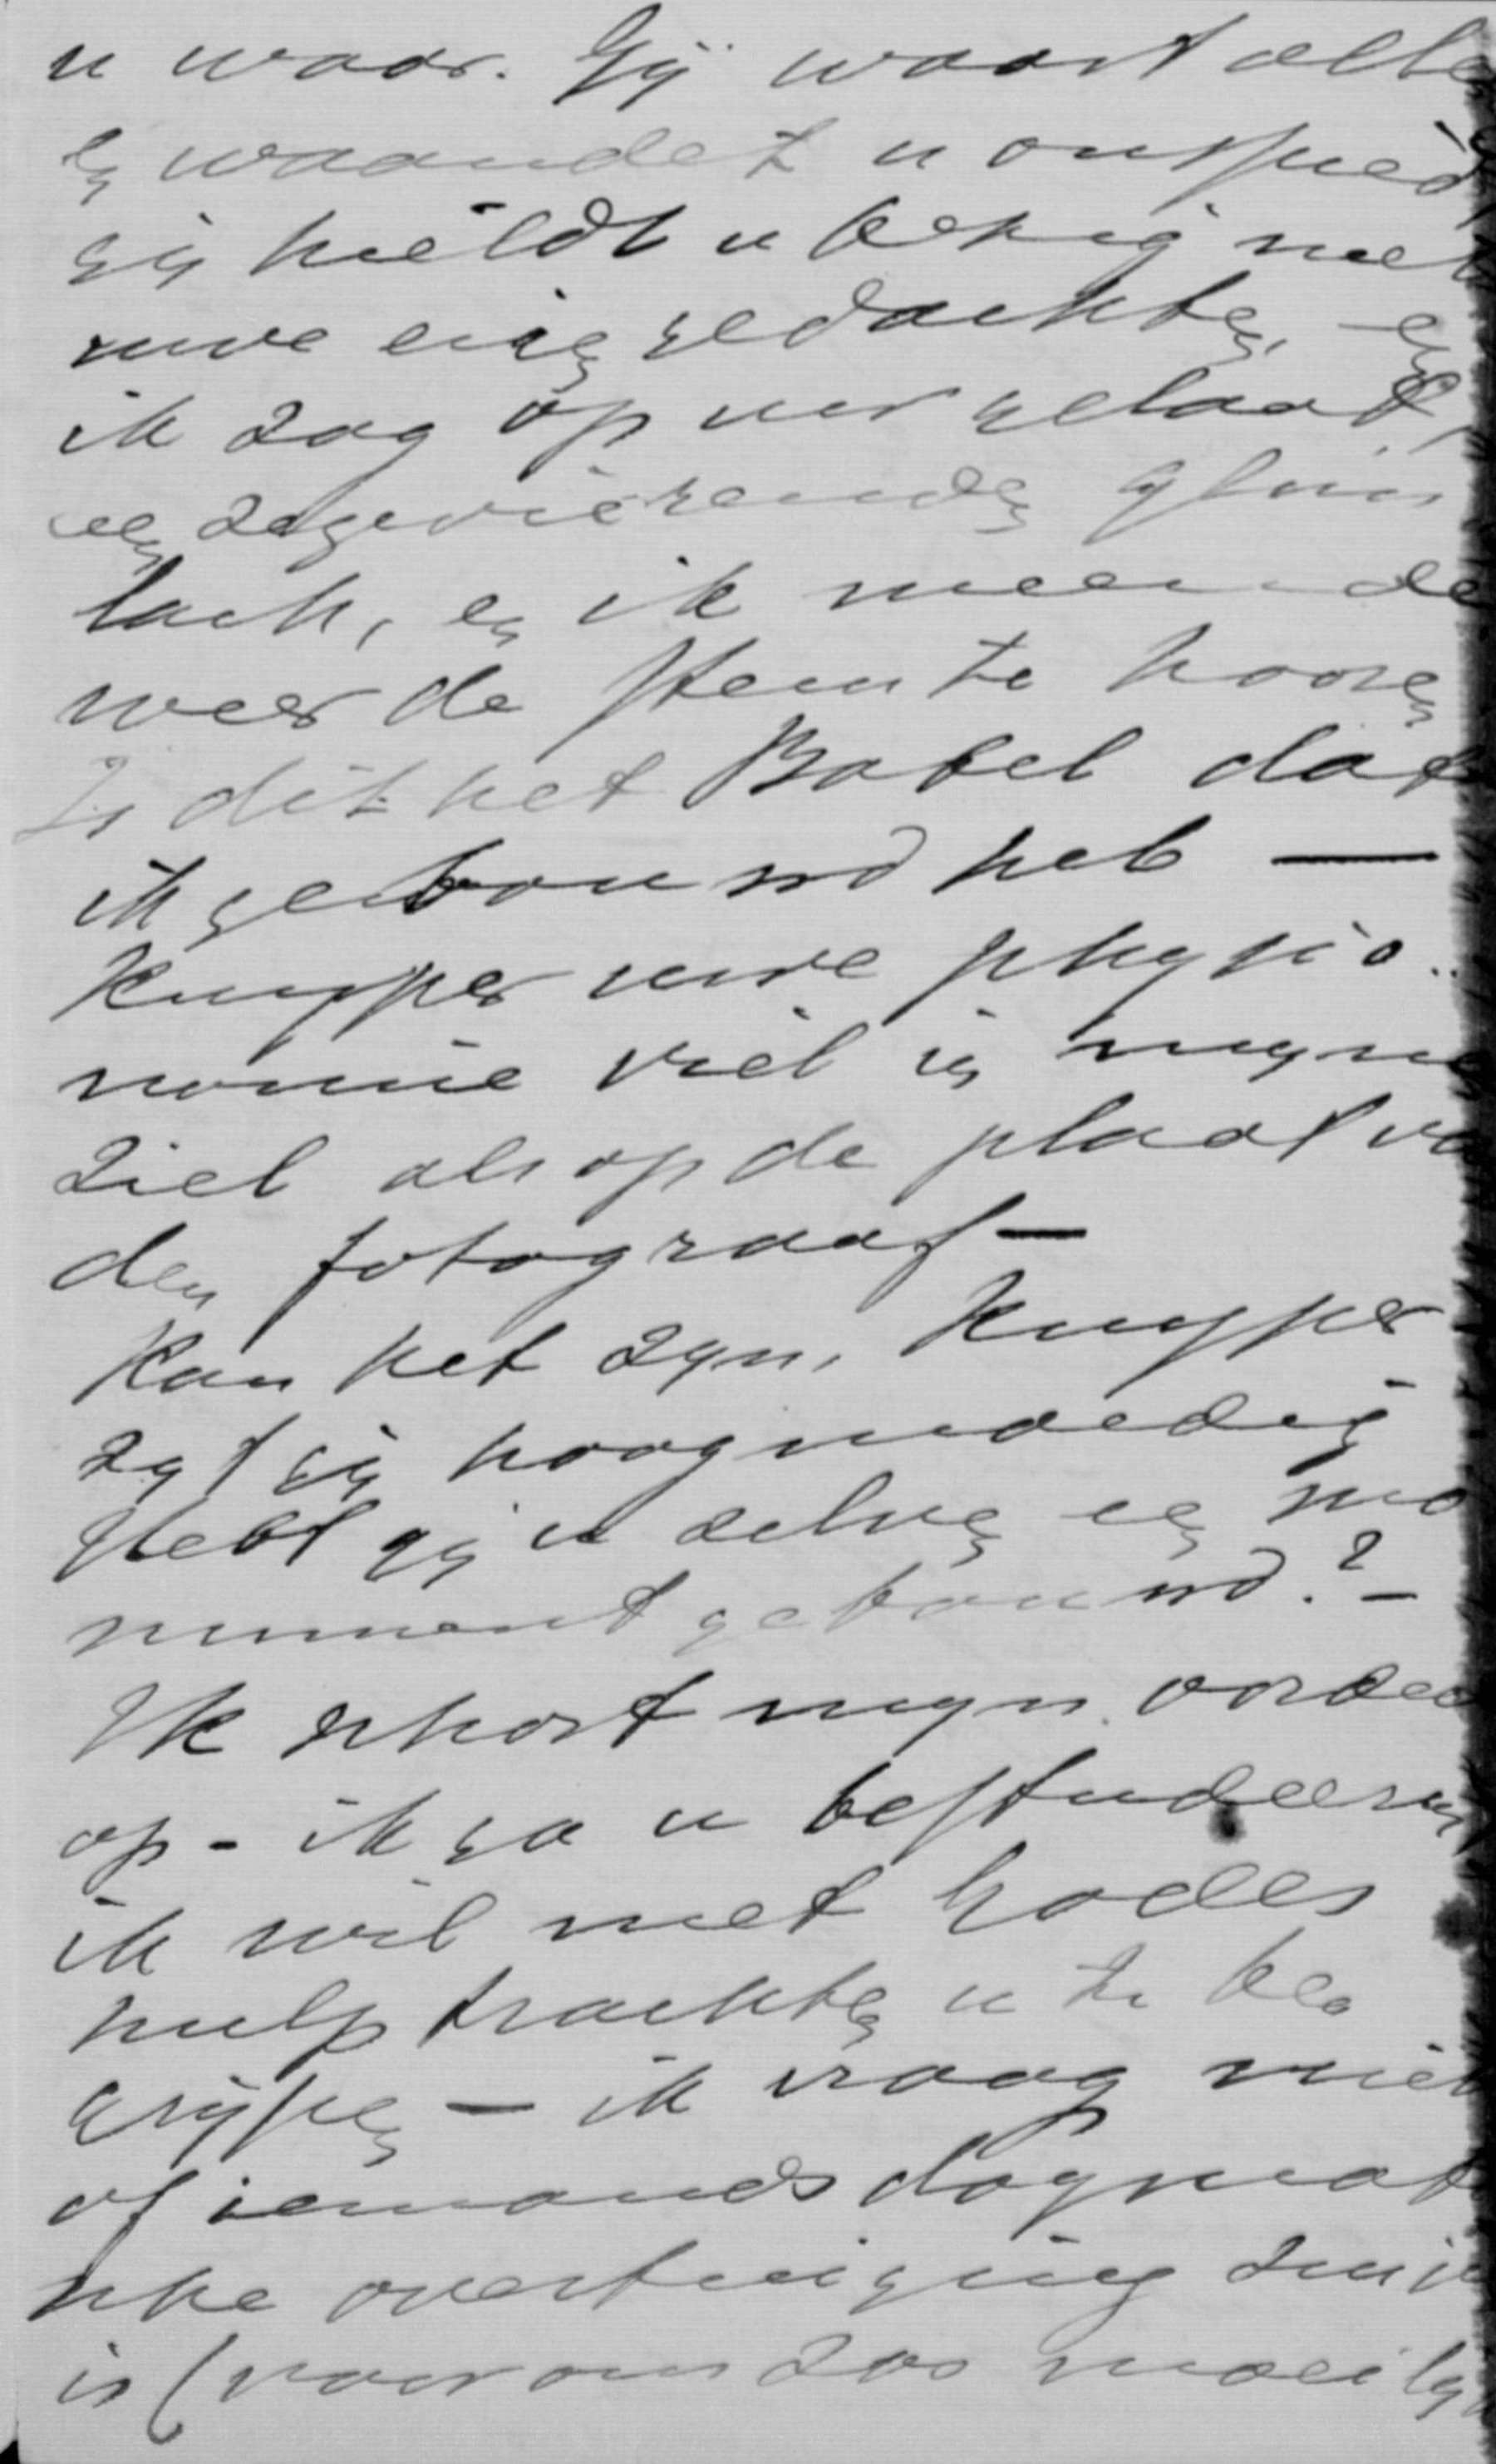 u waar. Gij waart alle
en waandet u onspied
gij hieldt u bezig met
uwe eigen gedachten, en
ik zag op uw gelaat,
een zegevierenden glim
lach, en ik meende
weer de stem te hooren
Is dit het Babel dat
ik gebouwd heb —
Kuyper uwe physio..
nomie viel in myne
ziel als op de plaat va
den fotograaf —
Kan het zyn, Kuyper
zyt gij hoogmoedig
Hebt gij u zelven een mo
nument gebouwd? —
Ik schort myn oordeel
op - ik ga u bestudeeren
ik wil met Godes
hulp trachten u te be
grijpen — ik vraag niet
of iemands dogmati
sche overtuiging zuiv
is (voor ons zoo moeily